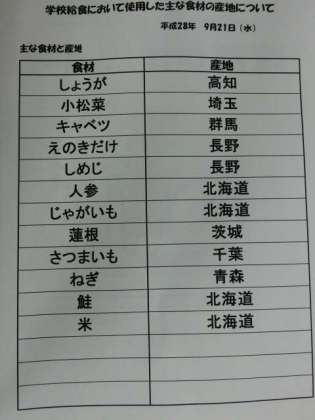 学校給食において使用した主な食材の産地について
平成28年 9月21日（水）
主な食材と産地
食材 産地
しょうが 高知
小松菜 埼玉
キャベツ 群馬
えのきだけ 長野
しめじ 長野
人参 北海道
じゃがいも 北海道
蓮根 茨城
さつまいも 千葉
ねぎ 青森
鮭 北海道
米 北海道